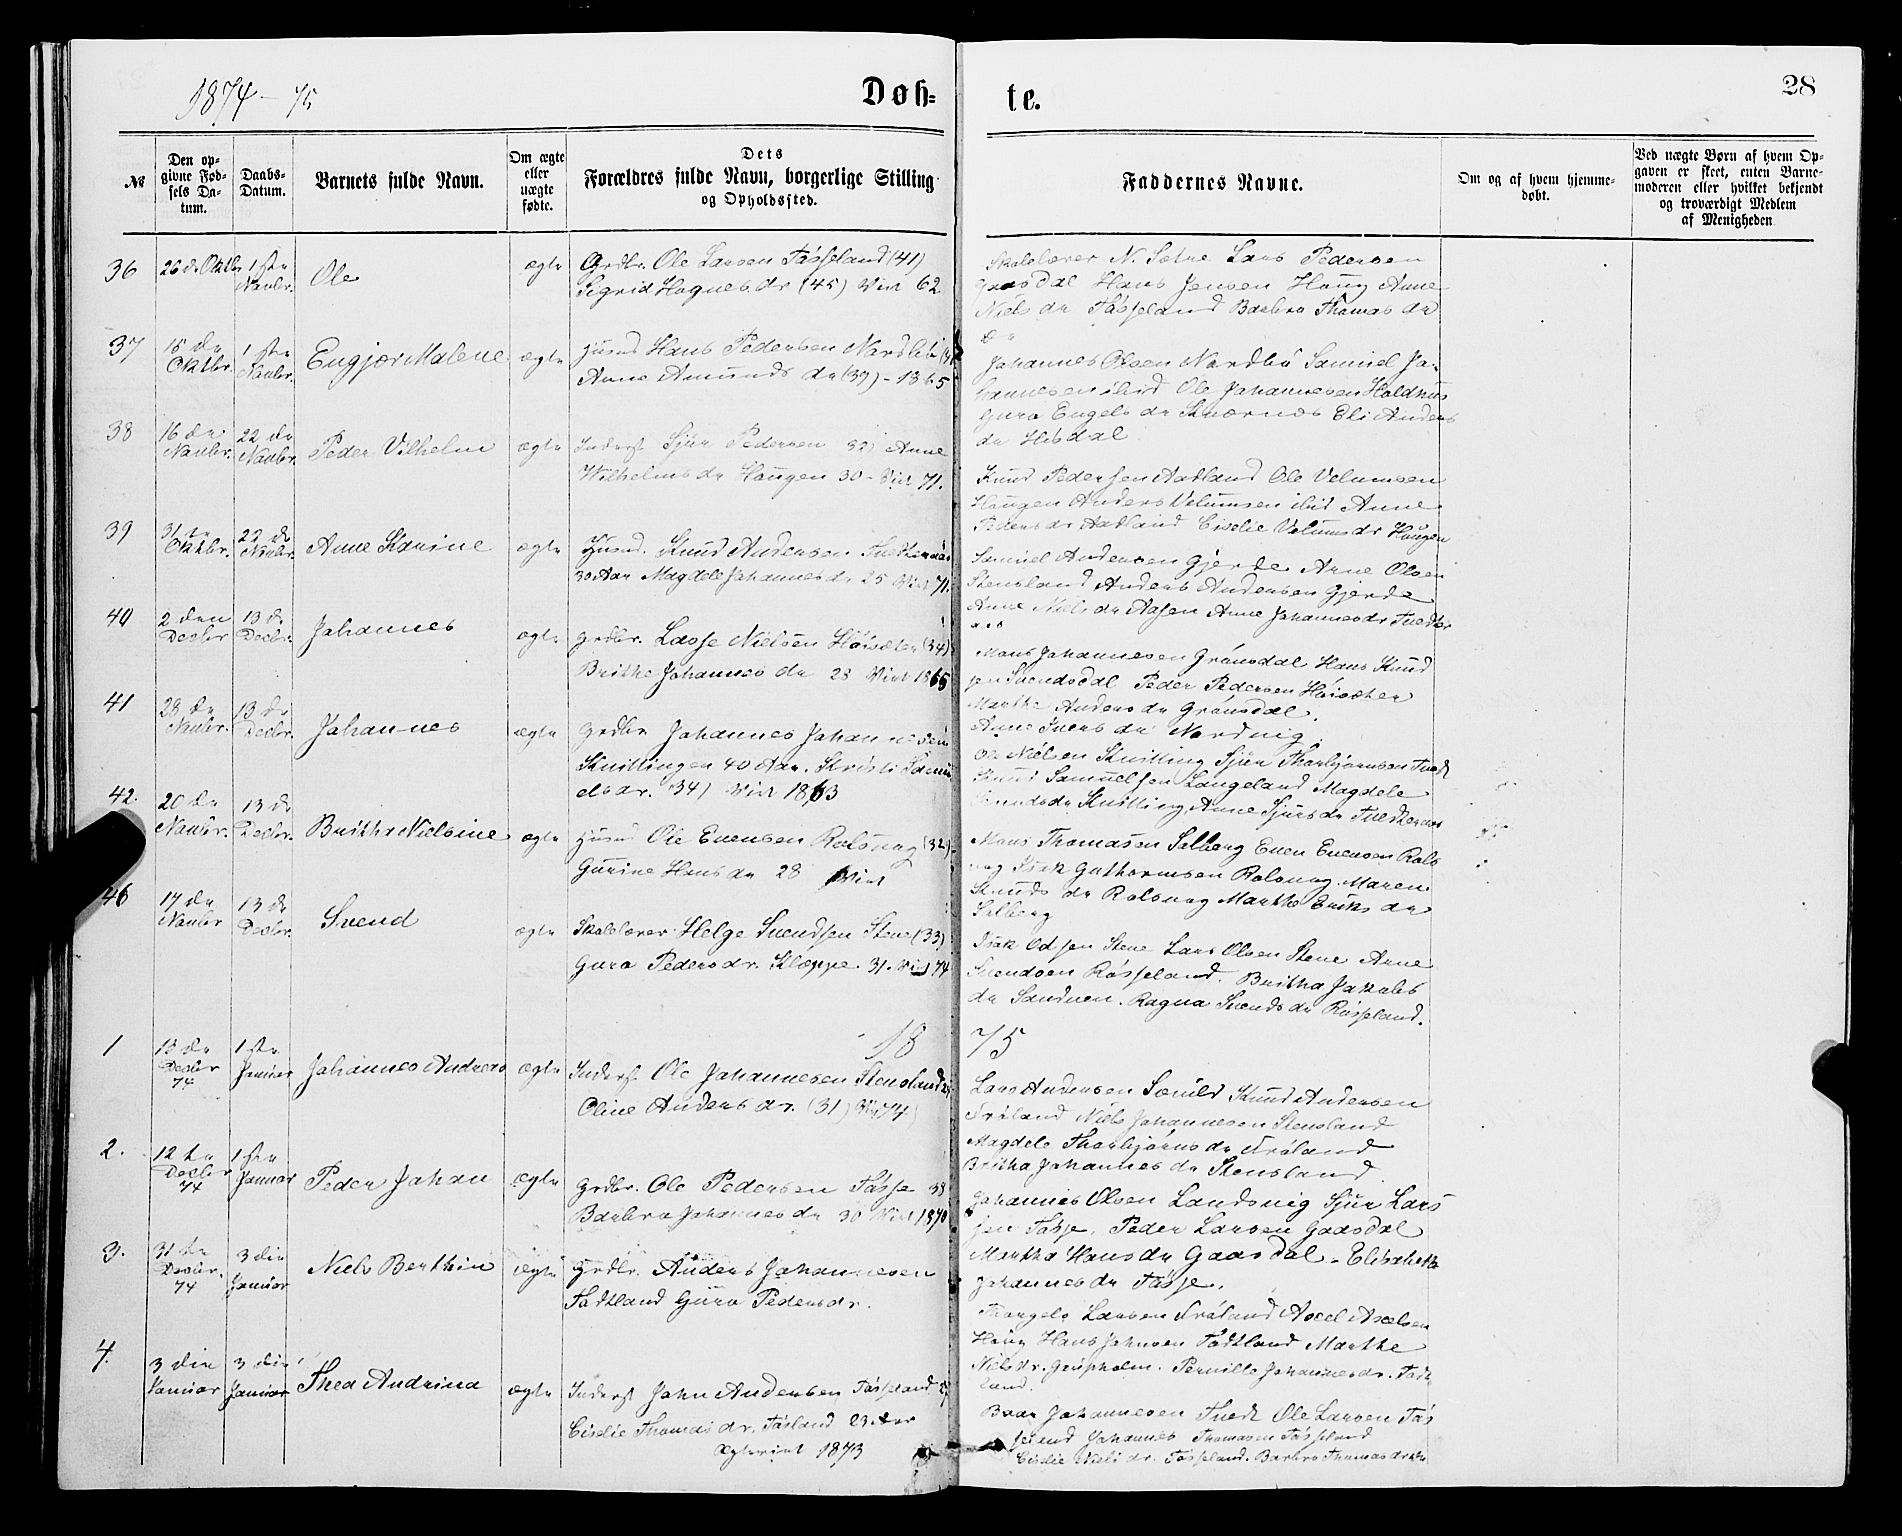 1874-75
Døb-
te.
28
№
Den op-
givne Fød-
sels Da-
tum.
Daabs-
Datum.
Barnets fulde Navn.
Om ægte
eller
uægte
fødte.
Dets
Forældres fulde Navn, borgerlige Stilling
og Opholdssted.
Faddernes Navne.
Om og af hvem hjemme-
døbt.
Ved uægte Børn af hvem Op-
gaven er skeet, enten Barne-
moderen eller hvilket bekjendt
og troværdigt Medlem
af Menigheden
36
26 de Oktbr
1ste
Novbr.
Ole
ægte
Grdbr. Ole Larsen Tøsseland (41)
Sigrid Hognesdr (45) Viet 62
Skolelærer N. Sætre Lars Pedersen
Gaasdal Hans Jensen Houg Anne
Niels dr Tøsseland Barbro Thomas dr
do
37
15 de
Oktbr.
1ste
Novbr.
Engjær Malene
ægte
Husmd Hans Pedersen Nordbø
Anne Amunds dr (39) - 1865
Johannes Olsen Nordbø Samuel Jo-
hannesen ibid Ole Johannesen Holdhus
Guro Engels dr Skværnæs Eli Anders
dr Hisdal
38
16 de
Novbr.
22 de
Novbr.
Peder Vilhelm
ægte
Inderst Sjur Pedersen 32) Anne
Wilhelms dr Haugen 30 - Viet 71.
Knud Pedersen Aadland Ole Velumsen
Haugen Anders Velumsen ibid Anne
Peders dr Aadland Ciselie Velums dr Haugen
39
31te
Oktbr.
22 de
Novbr.
Anne Karine
ægte
Husmd. Knud Andersen Tveternæs
30 Aar Magdele Johannes dr 25 Viet 71.
Samuel Andersen Gjerde Arne Olsen
Stensland Anders Andersen Gjerde
Anne Niels dr Aasen Anne Johannesdr Tvedter
næs
40
2 den
Decbr
13 de
Decbr.
Johannes
ægte
Grdbr. Lasse Nielsen Høisæter (34)
Brithe Johannes dr 28 Viet 1865
Mons Johannesen Grønsdal Hans Knud
sen Svendsdal Peder Pedersen Høisæter
Marthe Anders dr Grønsdal.
Anne Ivers dr Nordvig
41
28 de
Novbr.
13 de
Decbr.
Johannes
ægte
Grdbr Johannes Johannesen
Skuttingen 40 Aar. Kristi Samu
elsdr. 34) Viet 1863
Ole Nielsen Skutting Sjur Thorbjørnsen Tvedt
Knud Samuelsen Langeland Magdele
Knudsdr Skutting Anne Sjurs dr Tvedternæs
42.
20 de
Novbr.
13 de
Decbr.
Brithe Nielsine
ægte
Husmd Ole Evensen Rolsvaag (32)
Gurine Hans dr 28 Viet
Mons Thomasen Solberg Even Evensen Rols
vaag Isak Guthormsen Rolsvaag Maren
Knuds dr Rolsvaag Marthe Eriks dr
Solberg
46
17 de
Novbr
13 de
Decbr.
Svend
ægte
Skolelærer Helge Svendsen Stene (33)
Guro Peders dr. Kleppe 31. Viet 74
Isak Odsen Stene Lars Olsen Stene Arne
Svendsen Røsseland. Britha Jakobs
dr Sandven. Ragna Svends dr Røsseland.
18
75
1
13 de
Decbr
74
1ste
Januar
Johannes Andreas
ægte
Inderst Ole Johannesen Stensland
Oline Anders dr. (31) Viet 74)
Lars Andersen Knud Andersen
Frøland Niels Johannesen Stensland
Magdele Thorbjørns dr Frøland
Britha Johannes dr Stensland
2.
12 te
Decbr
74
1ste
Januar
Peder Johan
ægte
Grdbr. Ole Pedersen Tøsse 38
Barbro Johannesdr 30 Viet 1870
Johannes Olsen Landsvig Sjur Lars
sen Tøsse, Peder Larsen Gaasdal
Martha Hans dr Gaasdal - Elisabeth
Johannes dr Tøsse.
3.
31 te
Decbr.
74
3 die
Januar
Niels Berthin
ægte
Grdbr. Anders Johannesen
Tødtland Guro Pedersdr.
Thorgels Larsen Frøland Axel Axelsen
Houg Hans Johnsen Tødtland Marthe
Nielsdr. Gripholm. Pernille Johannesdr. Tødt
land.
4.
3 die
Januar
3 die
Januar
Thea Andrina
ægte
Inderst John Andersen Tøsseland
Ciselie Thomas dr. Tøsland 23 Aar
Ægteviet 1873
Baar Johannesen Tvedt Ole Larsen Tøs
seland Johannes Thomasen Tøsseland
Ciselie Niels dr. Tøsseland. Barbro Thomas dr